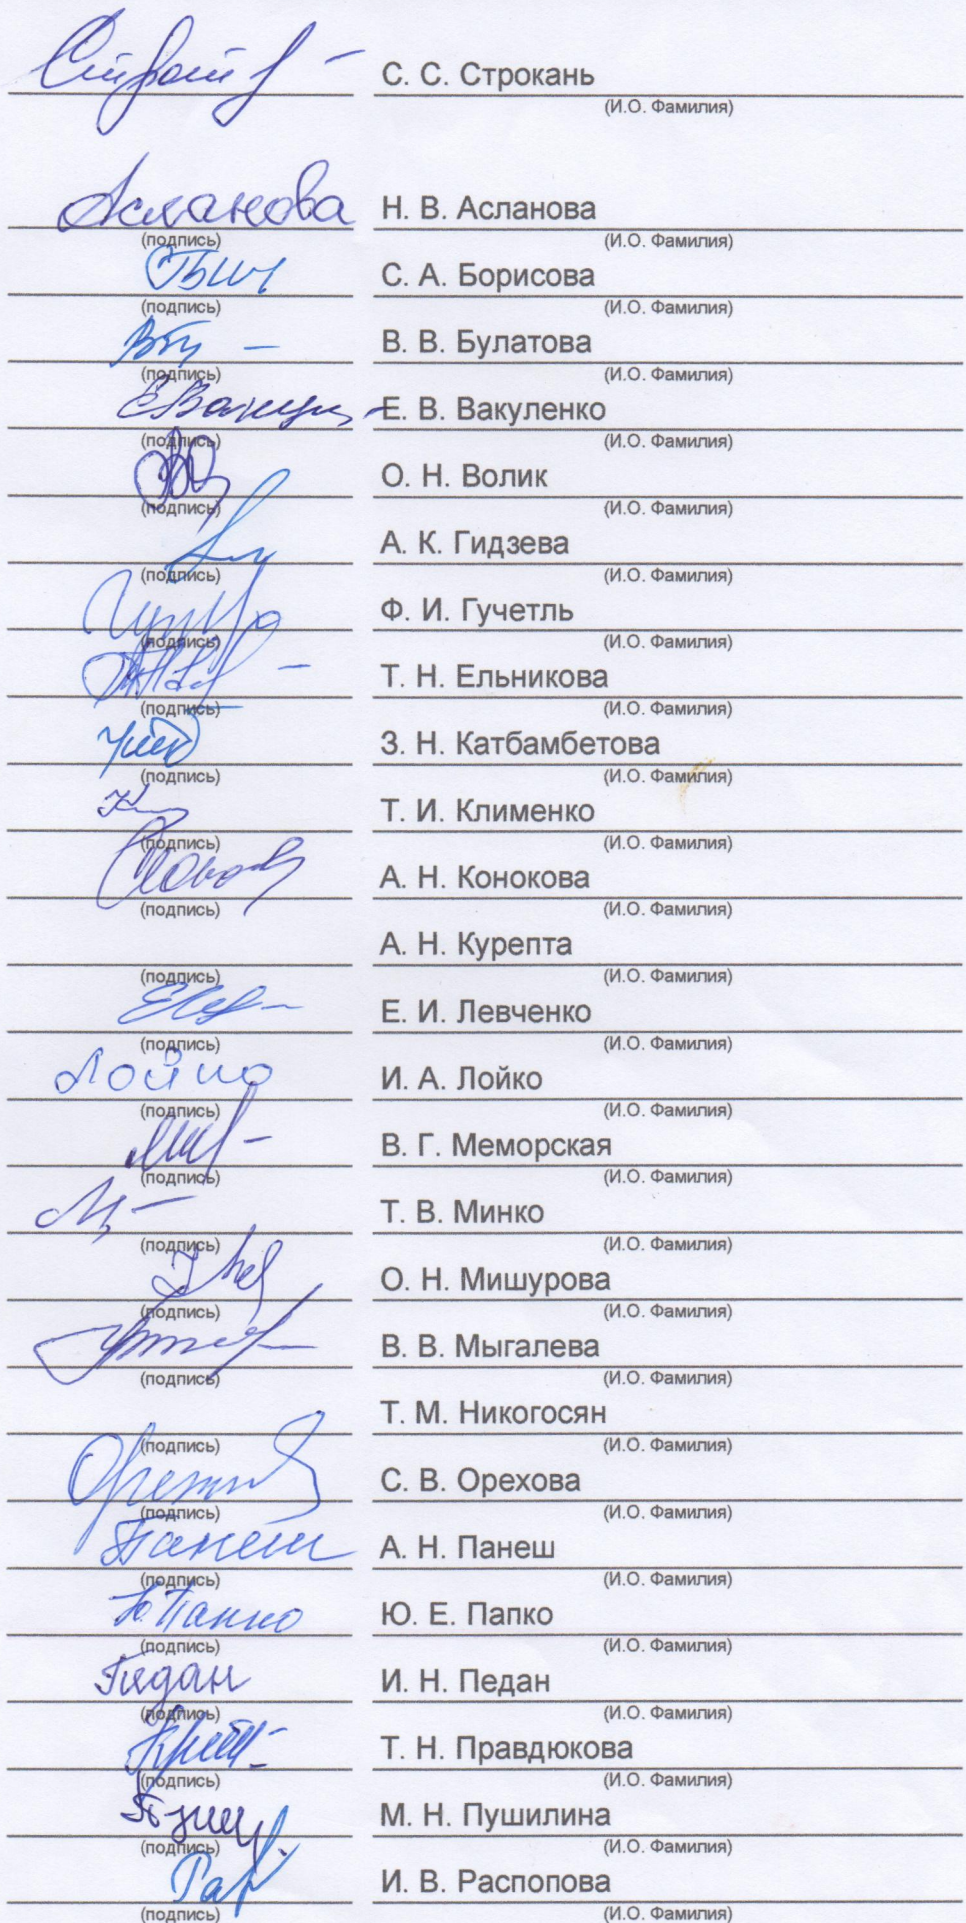 С. С. Строкань
(И.О. Фамилия)
Асланова Н. В. Асланова
(подпись) (И.О. Фамилия)
С. А. Борисова
(подпись) (И.О. Фамилия)
В. В. Булатова
(подпись) (И.О. Фамилия)
Е. В. Вакуленко
(подпись) (И.О. Фамилия)
О. Н. Волик
(подпись) (И.О. Фамилия)
А. К. Гидзева
(подпись) (И.О. Фамилия)
Ф. И. Гучетль
(подпись) (И.О. Фамилия)
Т. Н. Ельникова
(подпись) (И.О. Фамилия)
З. Н. Катбамбетова
(подпись) (И.О. Фамилия)
Т. И. Клименко
(подпись) (И.О. Фамилия)
А. Н. Конокова
(подпись) (И.О. Фамилия)
А. Н. Курепта
(подпись) (И.О. Фамилия)
Е. И. Левченко
(подпись) (И.О. Фамилия)
Лойко И. А. Лойко
(подпись) (И.О. Фамилия)
В. Г. Меморская
(подпись) (И.О. Фамилия)
Т. В. Минко
(подпись) (И.О. Фамилия)
О. Н. Мишурова
(подпись) (И.О. Фамилия)
В. В. Мыгалева
(подпись) (И.О. Фамилия)
Т. М. Никогосян
(подпись) (И.О. Фамилия)
С. В. Орехова
(подпись) (И.О. Фамилия)
Панеш А. Н. Панеш
(подпись) (И.О. Фамилия)
Ю. Папко Ю. Е. Папко
(подпись) (И.О. Фамилия)
Педан И. Н. Педан
(подпись) (И.О. Фамилия)
Т. Н. Правдюкова
(подпись) (И.О. Фамилия)
М. Н. Пушилина
(подпись) (И.О. Фамилия)
И. В. Распопова
(подпись) (И.О. Фамилия)